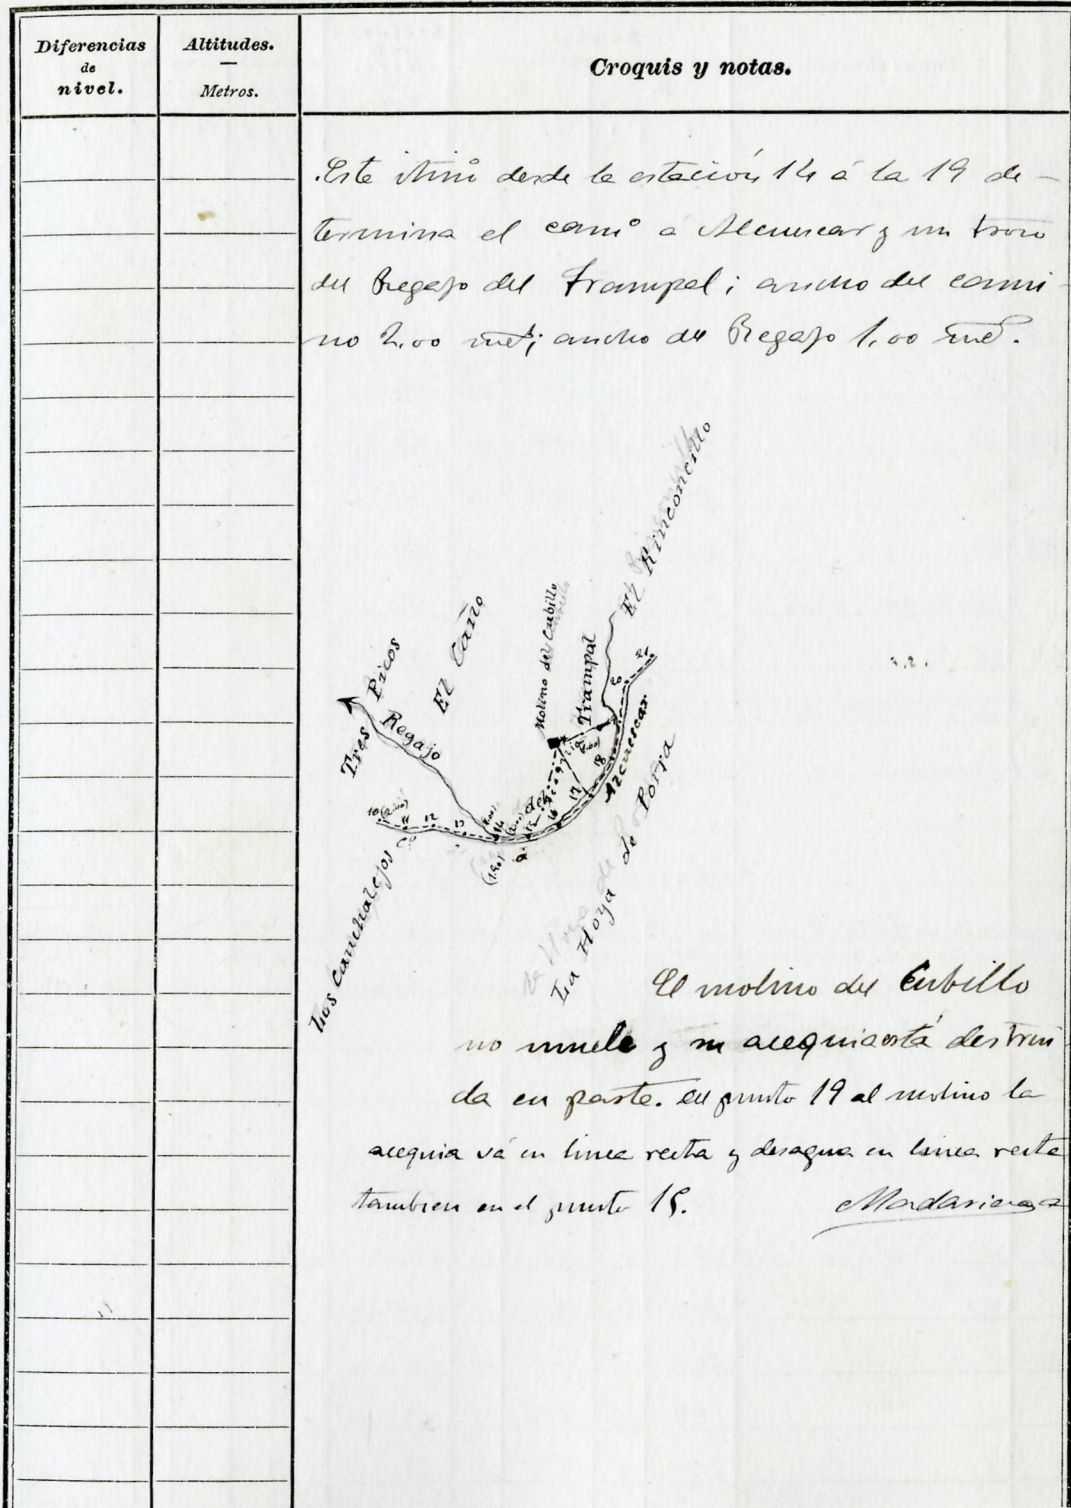 Diferencias
de
nivel.
Altitudes.
Metros.
Croquis y notas.
Este itinº desde la estación 14 á la 19 de-
termina el camº a Alcuescar y un trozo
del Regajo del Trampal; ancho del cami-
no 2,00 met; ancho del Regajo 1,00 met.
El Rinconcillo
Molino del Cubillo
El Caño
Tres Picos
Regajo
Trampal
21
20
18
17
16
15
14
13
12
11
10
(2,00)
del
Acequia
a
Alcuescar
(1,00)
Los Canchalejos
La Hoya de Porra
El molino del Cubillo
no muele y su acequia está destrui-
da en parte. del punto 19 al molino la
acequia vá en linea recta y desagua en linea recta
tambien en el punto 15.
Madariaga